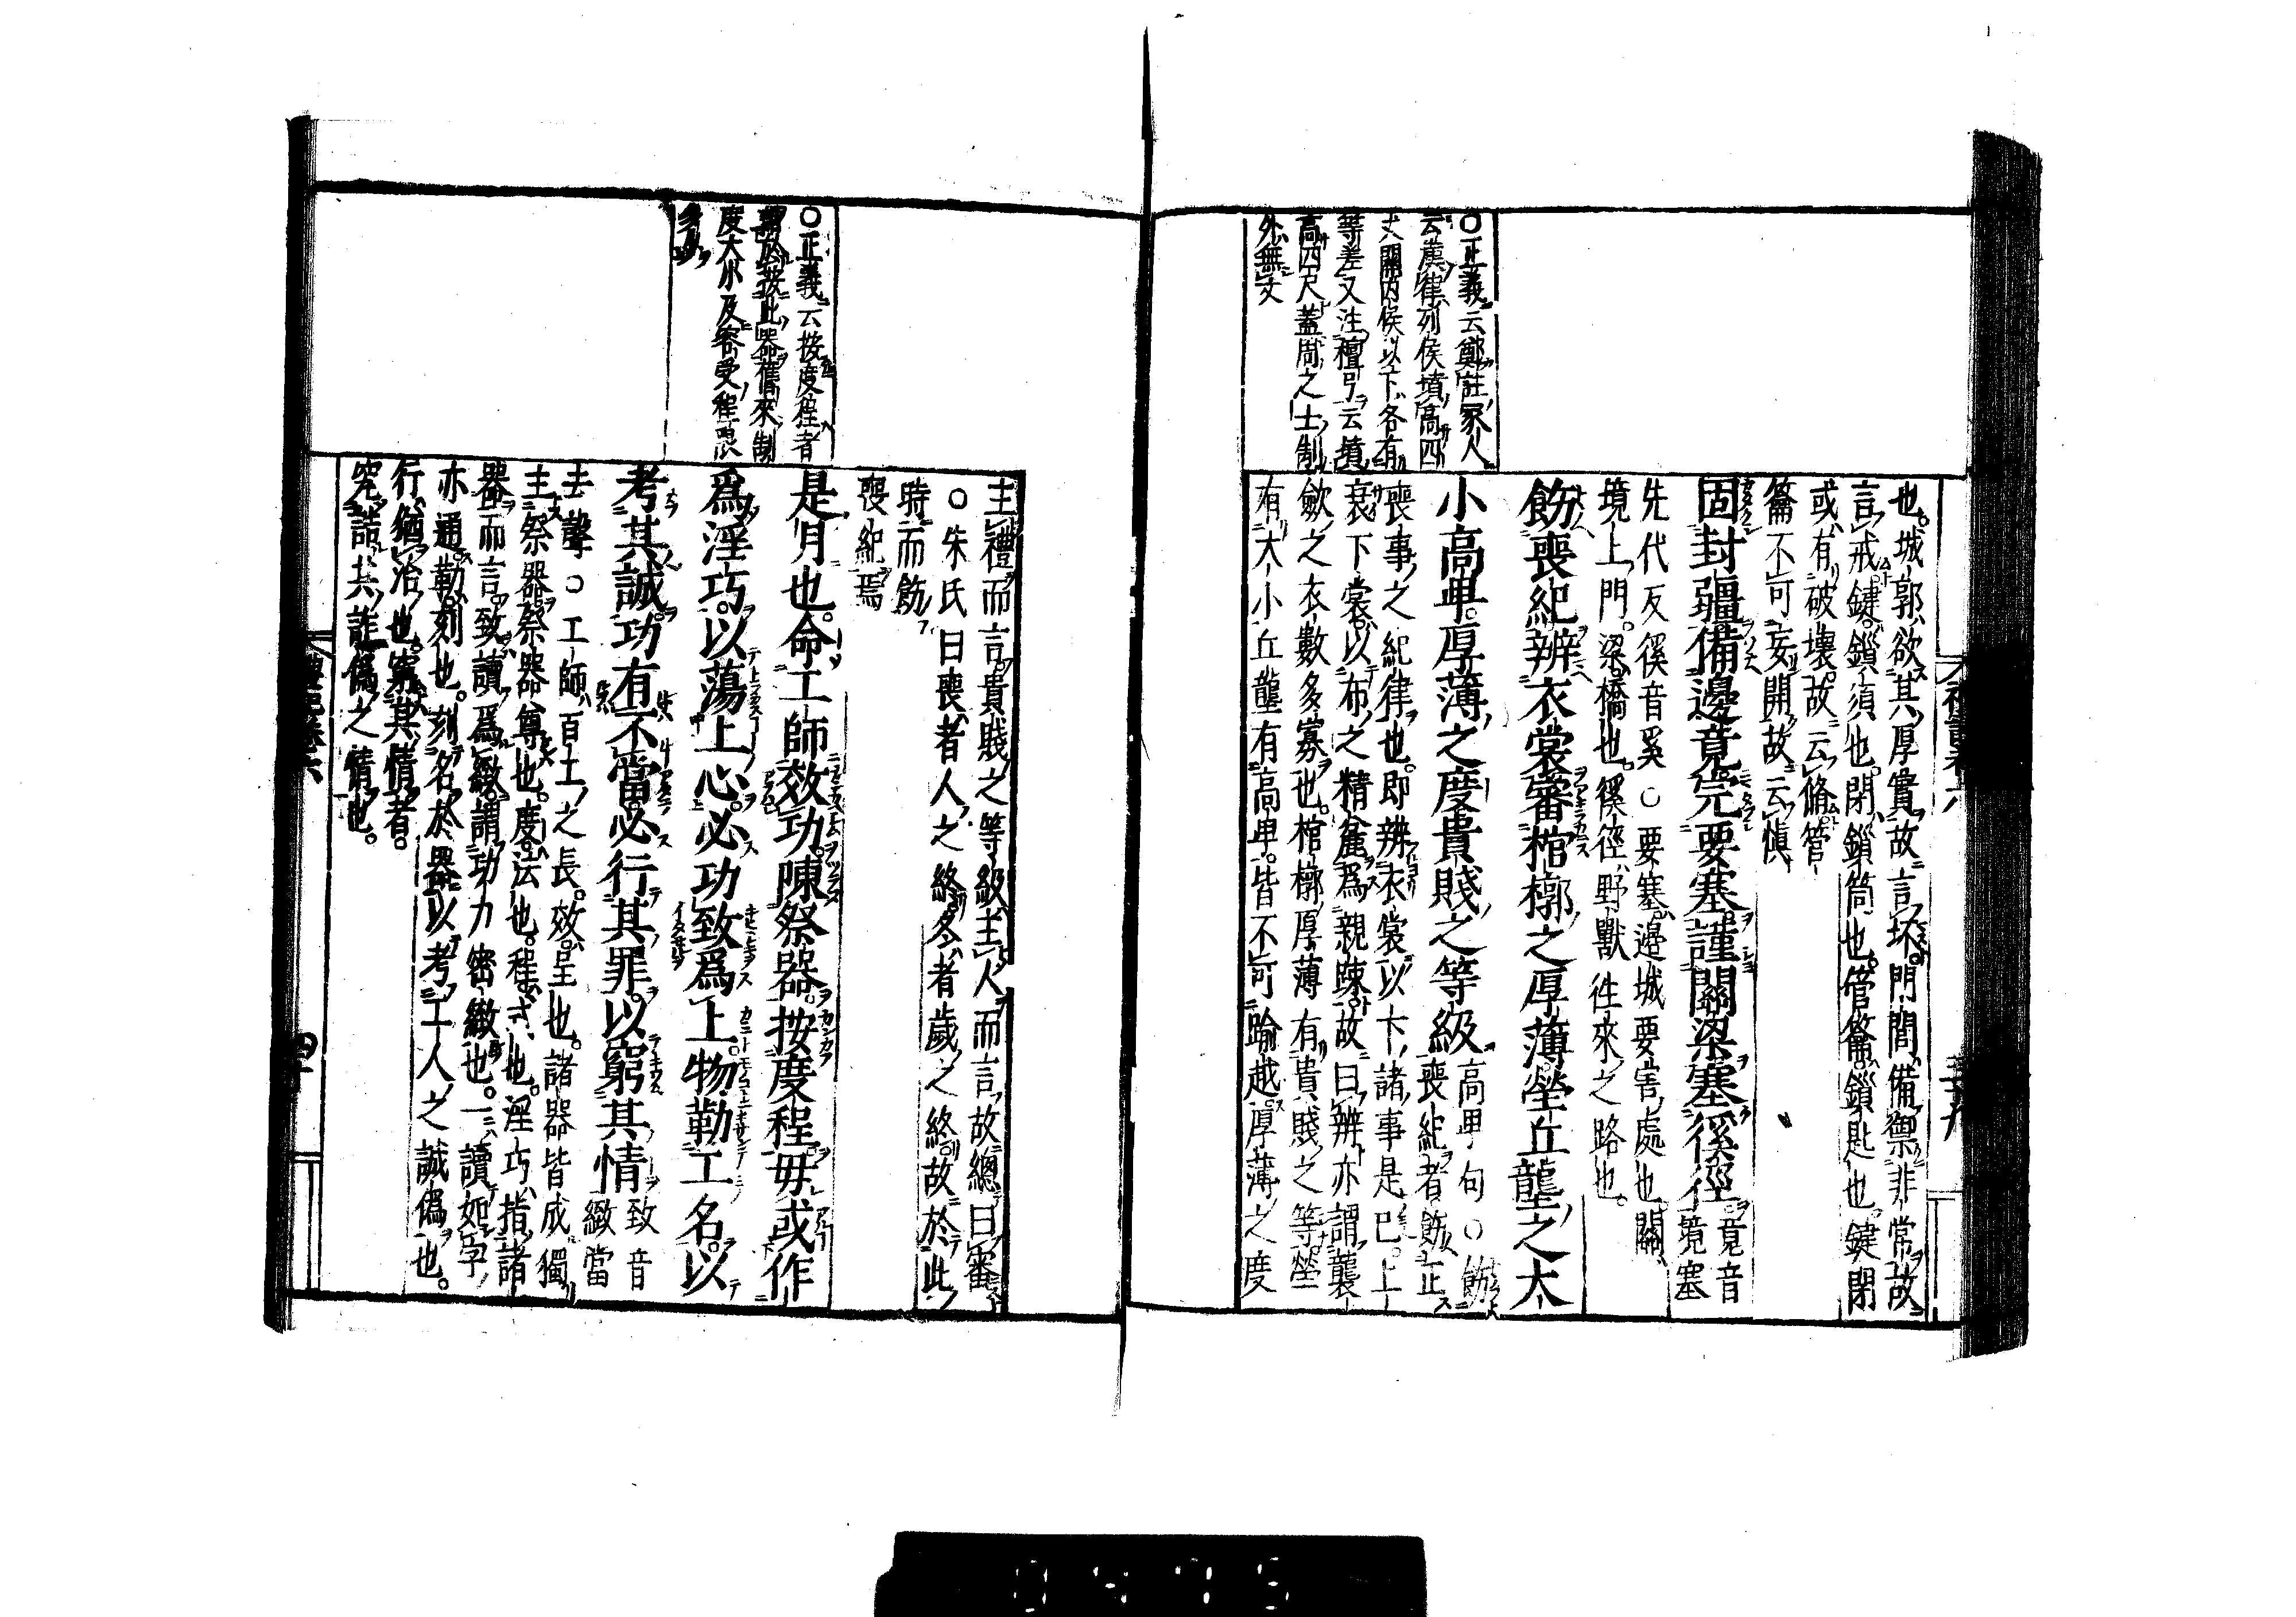 〇正義云鄭註冢人
云漢律列侯墳高四
丈關内侯以下各有
等差又注檀弓云墳
高四尺蓋周之士制
外無文
也城郭欲其厚實故言坏門閭備禦非常故
言戒鍵鎖須也閉鎖筒也管籥鎖匙也鍵閉
或有破壞故云脩管
籥不可妄開故云愼
固封疆備邊竟完要塞謹關梁塞徯徑竟音
境塞
先代反徯音奚〇要塞邊城要害處也關
境上門梁橋也徯徑野獸往來之路也
飭喪紀辨衣裳審棺槨之厚薄塋丘壟之大
小高卑厚薄之度貴賤之等級高卑句〇飭
喪紀者飭正
喪事之紀律也即辨衣裳以下諸事是已上
衰下裳以布之精麄爲親疎故曰辨亦謂襲
歛之衣數多寡也棺槨厚薄有貴賤之等塋
有大小丘壟有高卑皆不可踰越厚薄之度
禮記卷六
三十九
〇正義云按度程者
謂於按此器舊來制
度大小及容受程限
多少
主禮而言貴賤之等級主人而言故總曰審
〇朱氏曰喪者人之終冬者歲之終故於此
時而飭
喪紀焉
是月也命工師效功陳祭器按度程毋或作
爲淫巧以蕩上心必功致爲上物勒工名以
考其誠功有不當必行其罪以窮其情致音
緻當
去聲〇工師百工之長效呈也諸器皆成獨
主祭器祭器尊也度法也程式也淫巧指諸
器而言致讀爲緻謂功力密緻也一讀如字
亦通勒刻也刻名於器以考工人之誠僞也
行猶治也窮其情者
究詰其詐僞之情也
禮記卷六
四十